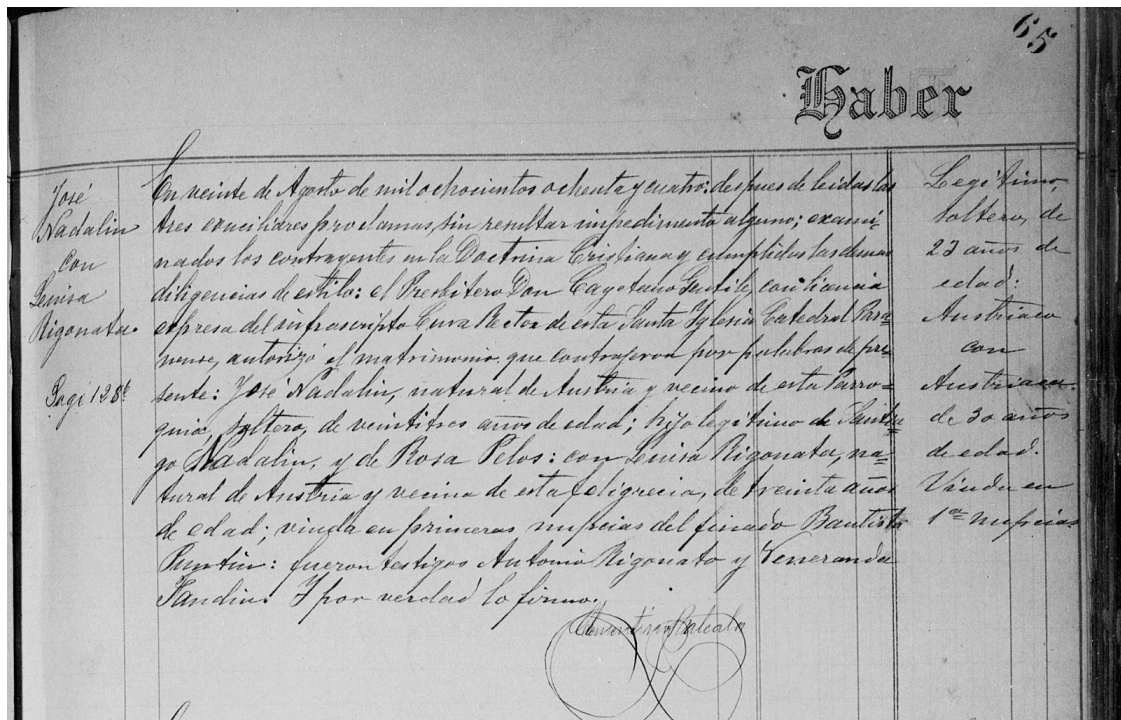 65
Haber
José
Nadalin
con
Luisa
Rigonata.
En veinte de Agosto de mil ochocientos ochenta y cuatro: despues de leidas las
tres conciliares proclamas, sin resultar impedimento alguno; exami-
nados los contrayentes en la Doctrina Cristiana y cumplidas las demas
diligencias de estilo: el Presbitero Don Cayetano Gentile, con licencia
espresa del infrascripto Cura Rector de esta Santa Iglesia Catedral Para-
nense, autorizó el matrimonio, que contrajeron por palabras de pre-
sente: José Nadalin, natural de Austria y vecino de esta Parro-
quia, soltero, de veintitres años de edad; hijo legitimo de Santia-
go Nadalin, y de Rosa Pelos: con Luisa Rigonata, na-
tural de Austria y vecina de esta feligrecia, de treinta años
de edad; viuda en primeras nupcias del finado Bautista
Puntin: fueron testigos Antonio Rigonato y Veneranda
Fandin. Y por verdad lo firmo.
Legitimo,
soltero, de
23 años de
edad:
Austriaco
con
Austriaca.
de 30 años
de edad.
Viuda en
1as nupcias